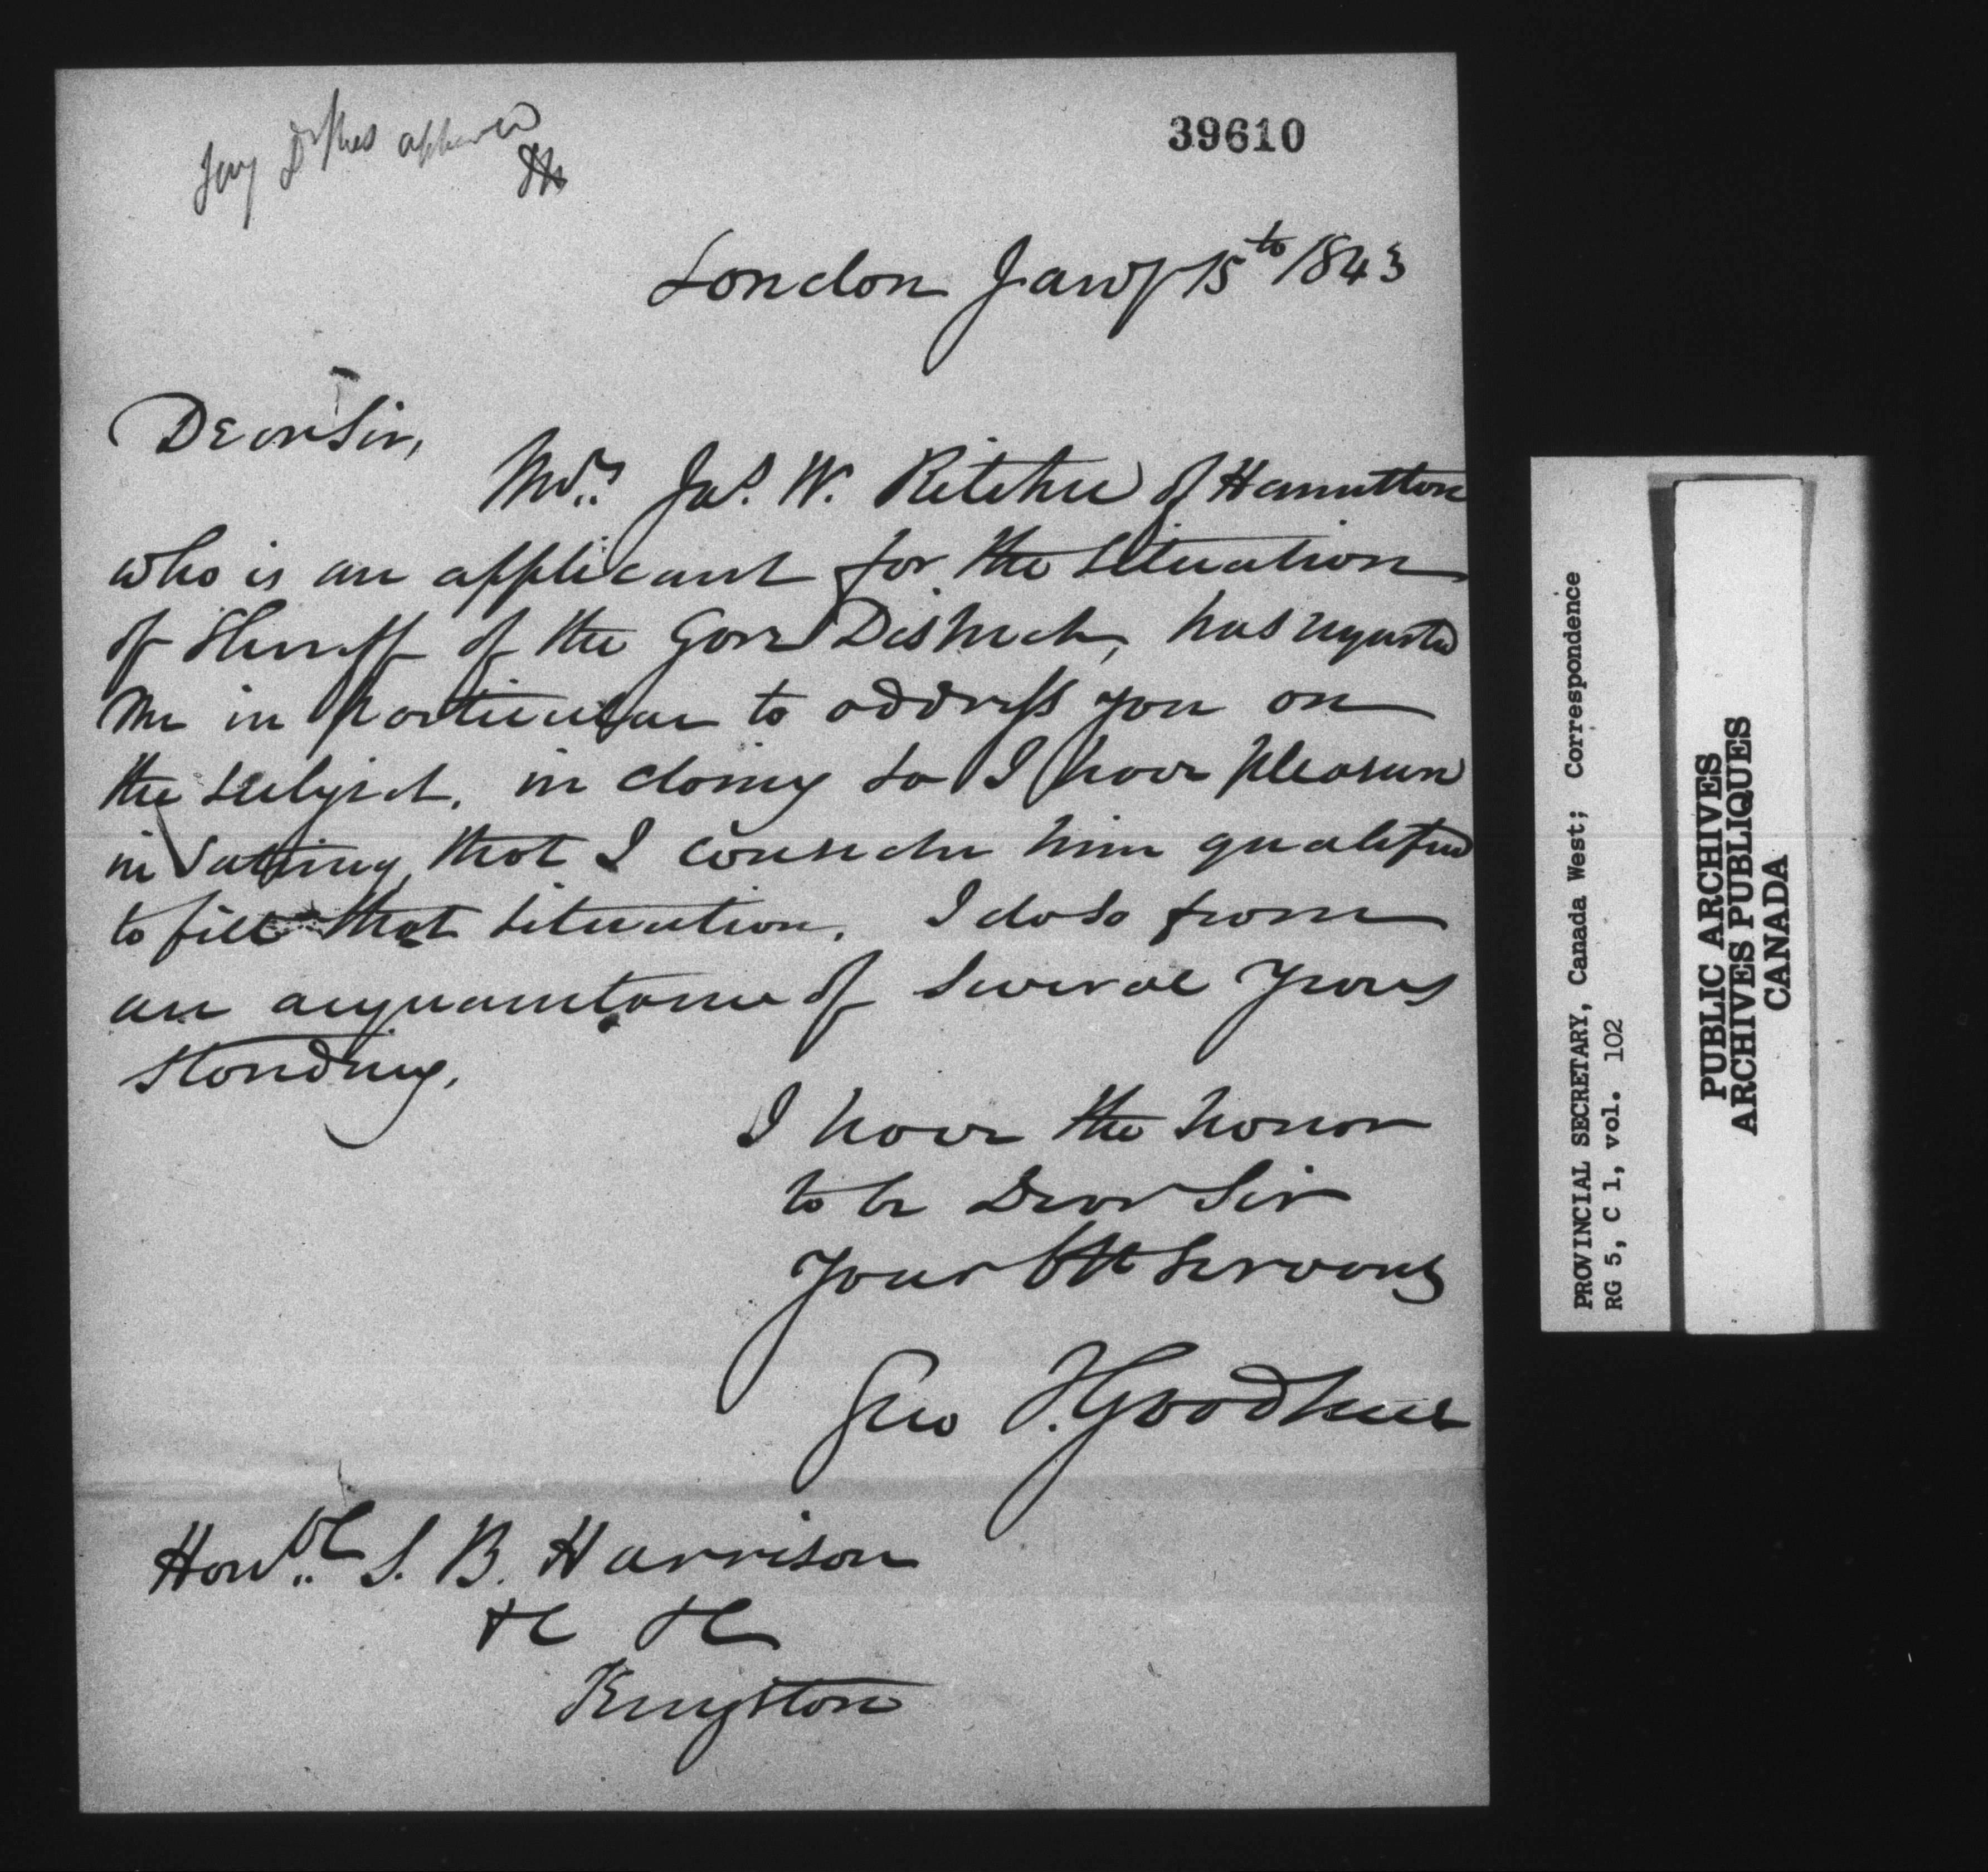 39610
London Jany 15th 1843
Dear Sir,
Mr. Jas. W. Ritchie of Hamilton
who is an applicant for the situation
of Sheriff of the Gore District, has requested
me in particular to address you on
the subject. in doing so I have pleasure
in stating, that I consider him qualified
to fill that situation. I do so from
an acquaintance of several years
standing.
I have the honor
to be Dear Sir
your Obt Servant
Geo J. Goodhue
Honble S. B. Harrison
&c &c
Kingston
PROVINCIAL SECRETARY, Canada West; Correspondence
RG 5, C 1, vol. 102
PUBLIC ARCHIVES
ARCHIVES PUBLIQUES
CANADA